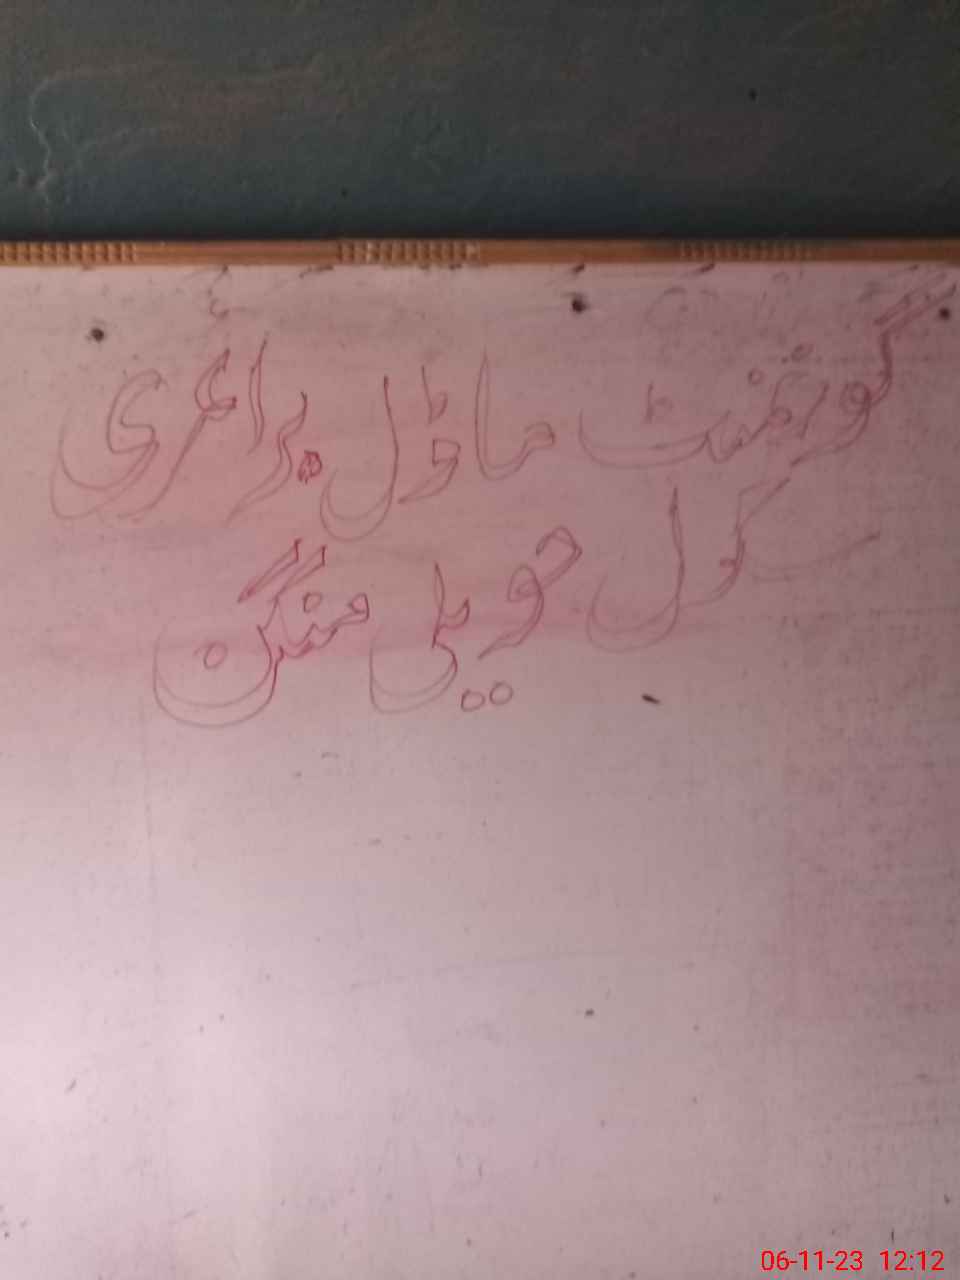 گورنمنٹ ماڈل پرائمری
سکول حویلی منگن
06-11-23 12:12